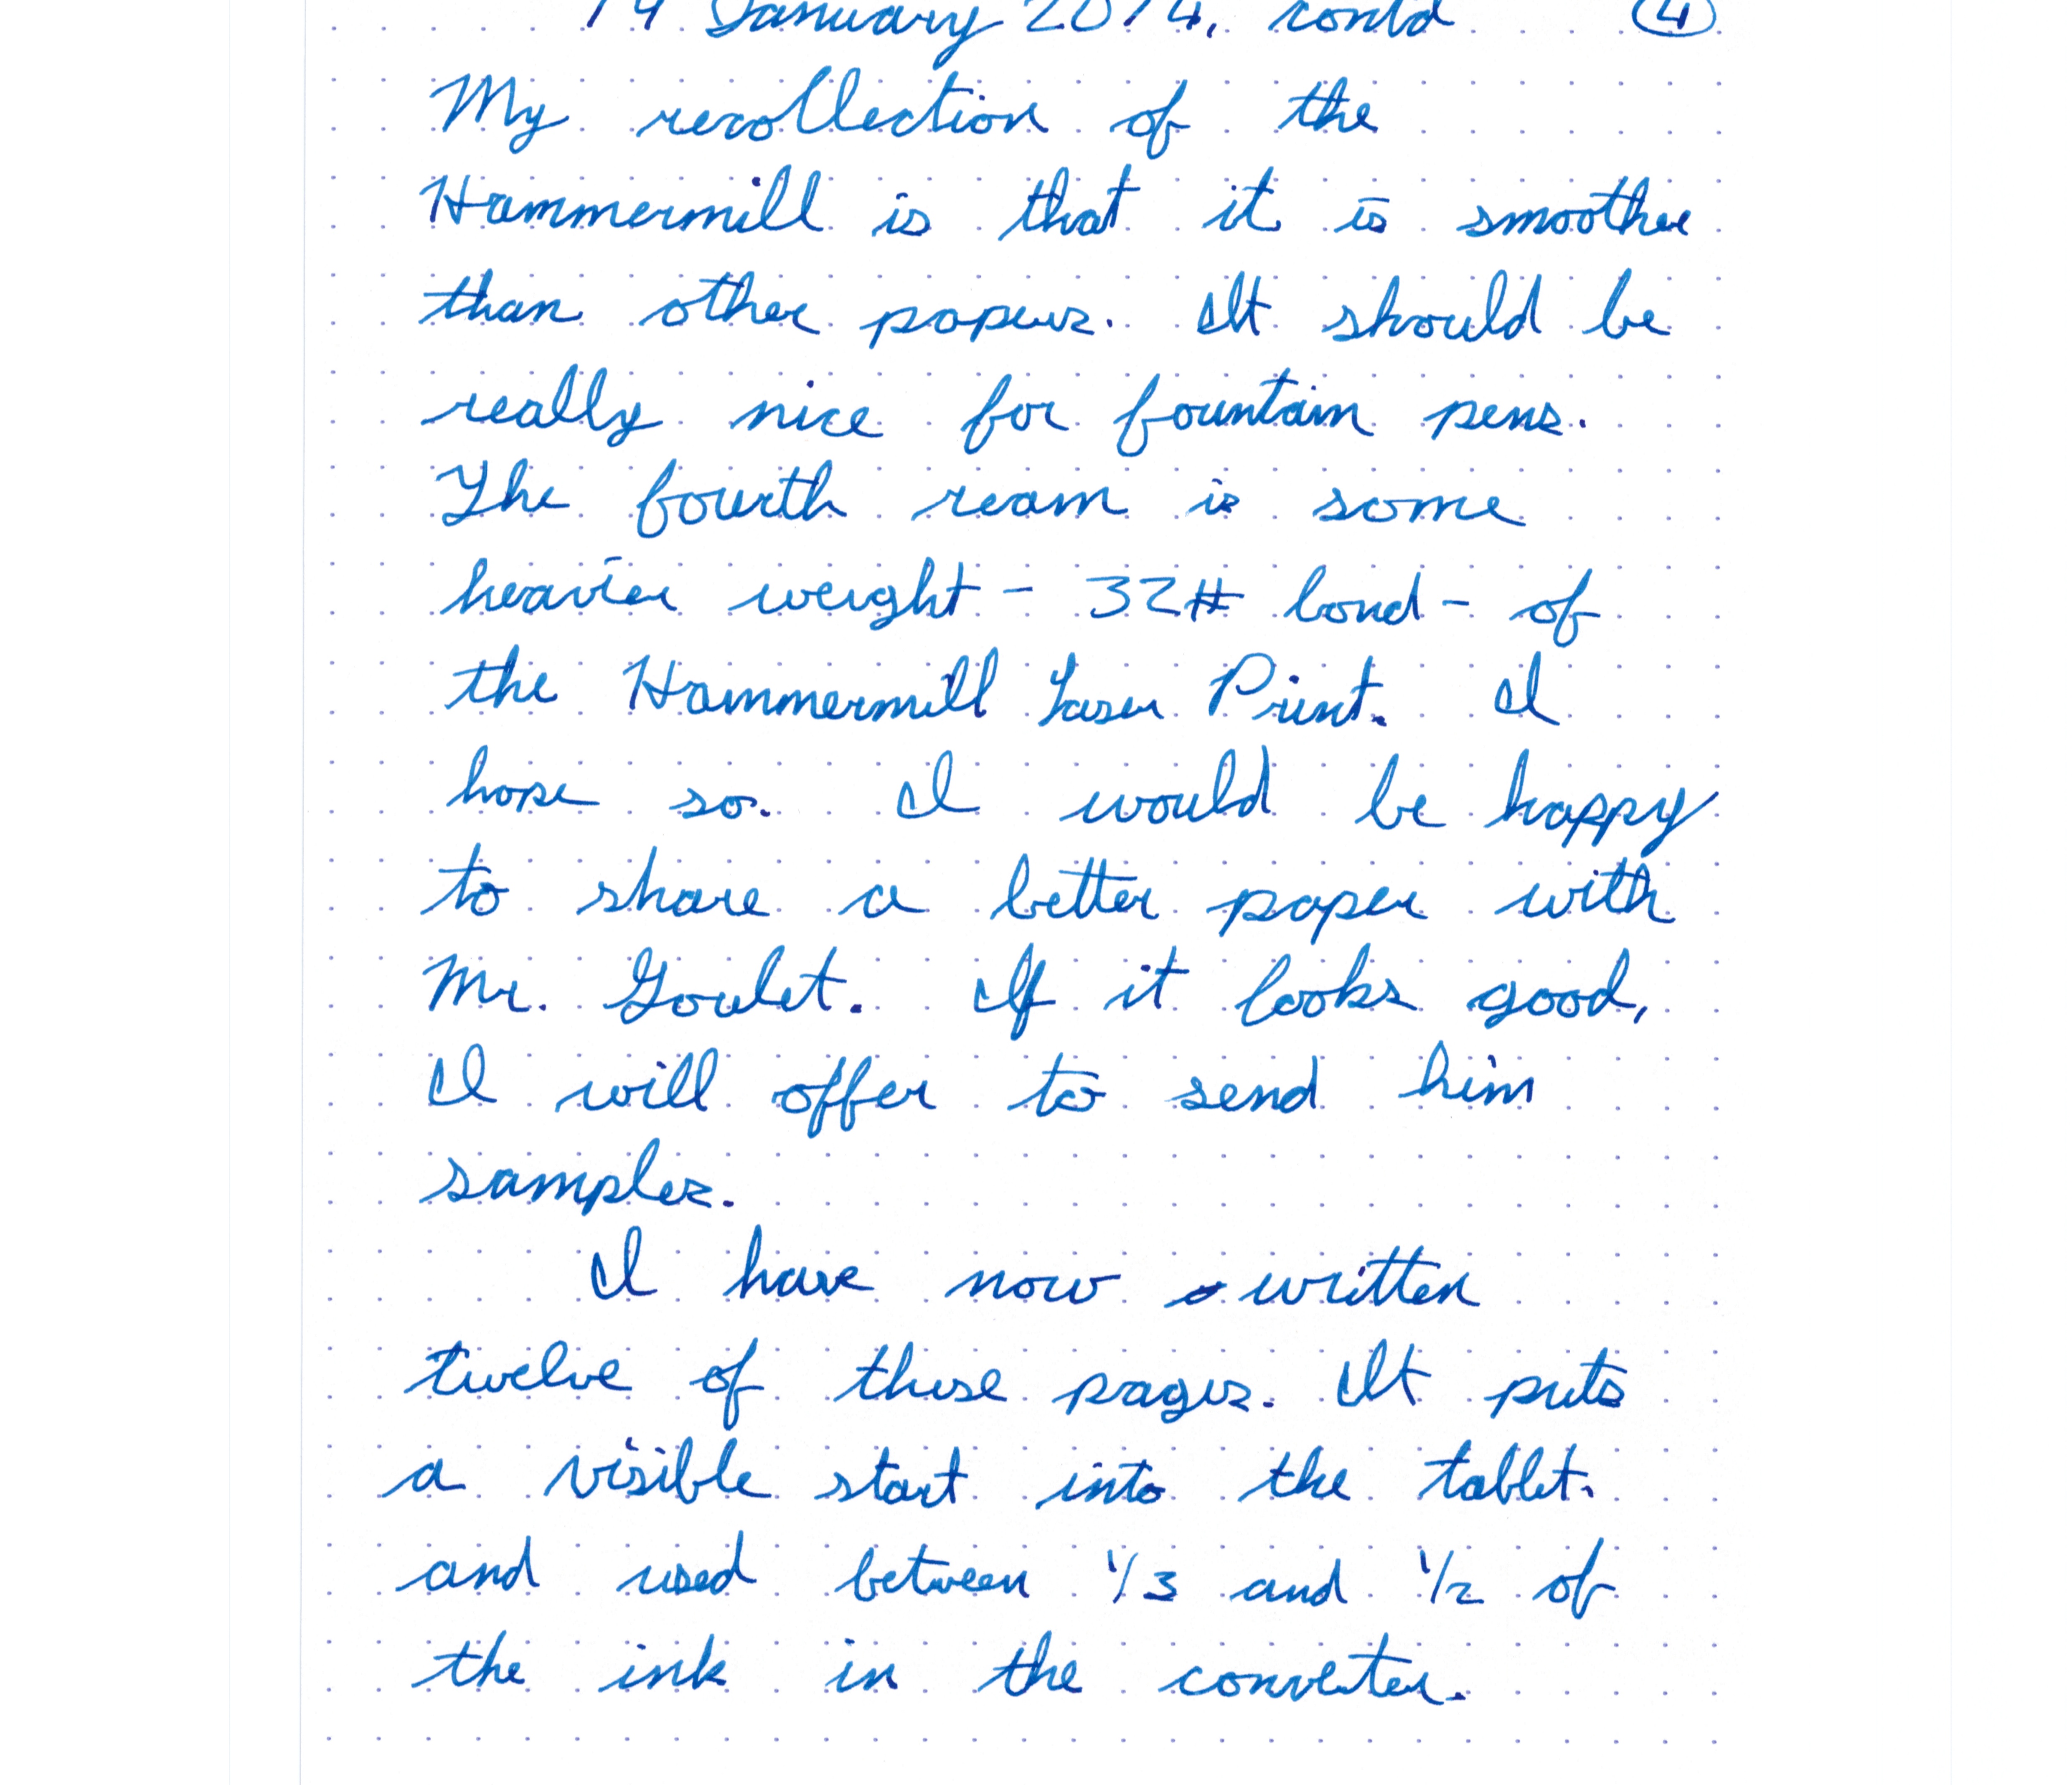 14 January 2014, contd 4
My recollection of the
Hammermill is that it is smoother
than other papers. It should be
really nice for fountain pens.
The fourth ream is some
heavier weight - 32# bond - of
the Hammermill Laser Print. I
hope so. I would be happy
to share a better paper with
Mr. Goulet. If it looks good,
I will offer to send him
samples.
I have now written
twelve of these pages. It puts
a visible start into the tablet.
and used between 1/3 and 1/2 of
the ink in the converter.